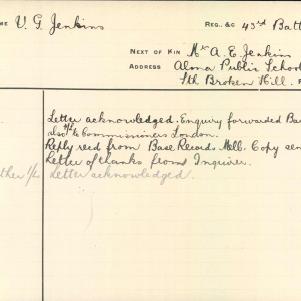 ME V. G. Jenkins REG., &C 43rd Batt
NEXT OF KIN Mr A. E. Jenkins
ADDRESS Alma Public School
Sth Broken Hill.
Letter acknowledged. Enquiry forwarded Ba
also to Commissioners London.
Reply recd from Base Records Melb. Copy sen
Letter of thanks from Inquirer.
ther Letter acknowledged.